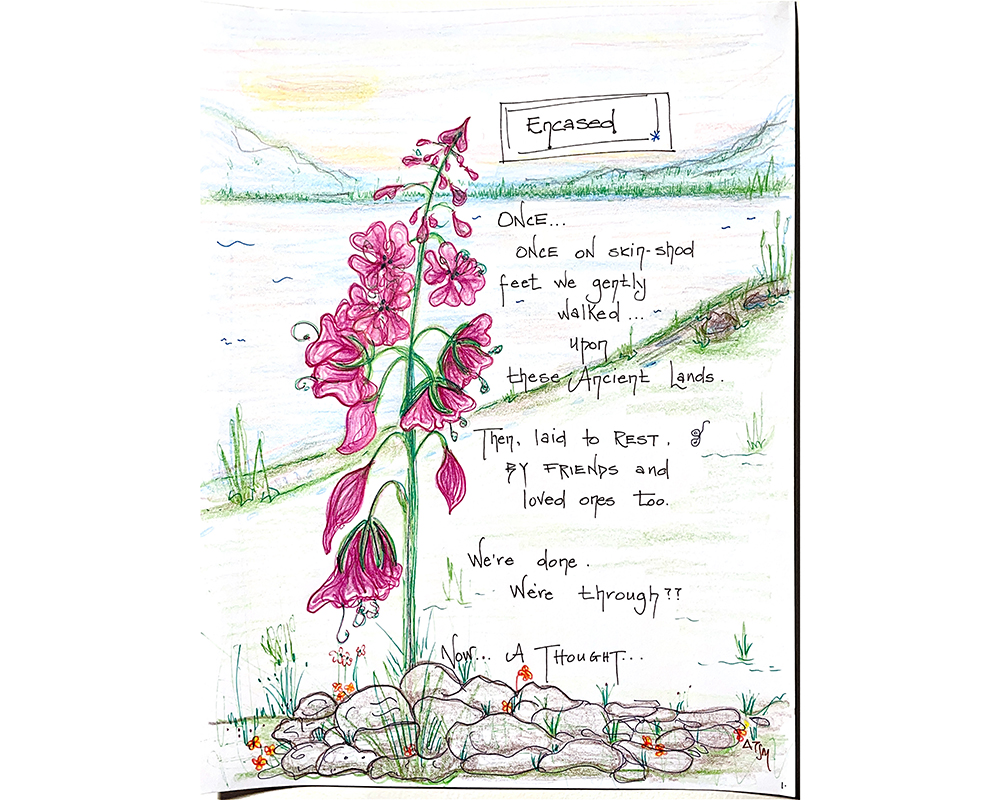 Encased *
ONCE...
ONCE ON SKIN-shod
feet we gently
walked...
upon
these Ancient Lands.
Then, laid to REST,
BY FRIENDS and
loved ones too.
We're done.
We're through??
Now... A THOUGHT...
ATSM
1.